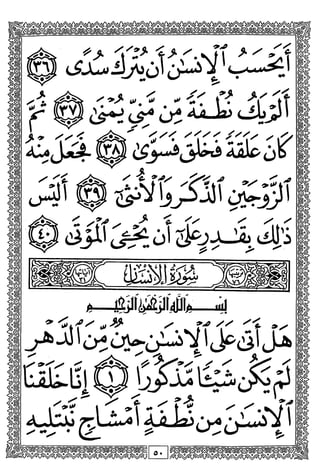 أَيَحْسَبُ ٱلْإِنسَـٰنُ أَن يُتْرَكَ سُدًى ٣٦
أَلَمْ يَكُ نُطْفَةً مِّن مَّنِىٍّ يُمْنَىٰ ٣٧ ثُمَّ
كَانَ عَلَقَةً فَخَلَقَ فَسَوَّىٰ ٣٨ فَجَعَلَ مِنْهُ
ٱلزَّوْجَيْنِ ٱلذَّكَرَ وَٱلْأُنثَىٰٓ ٣٩ أَلَيْسَ
ذَٰلِكَ بِقَـٰدِرٍ عَلَىٰٓ أَن يُحْـِۧىَ ٱلْمَوْتَىٰ ٤٠
سُورَةُ الإِنسَان
بِسْمِ ٱللَّهِ ٱلرَّحْمَـٰنِ ٱلرَّحِيمِ
هَلْ أَتَىٰ عَلَى ٱلْإِنسَـٰنِ حِينٌ مِّنَ ٱلدَّهْرِ
لَمْ يَكُن شَيْـًٔا مَّذْكُورًا ١ إِنَّا خَلَقْنَا
ٱلْإِنسَـٰنَ مِن نُّطْفَةٍ أَمْشَاجٍ نَّبْتَلِيهِ
٥٠